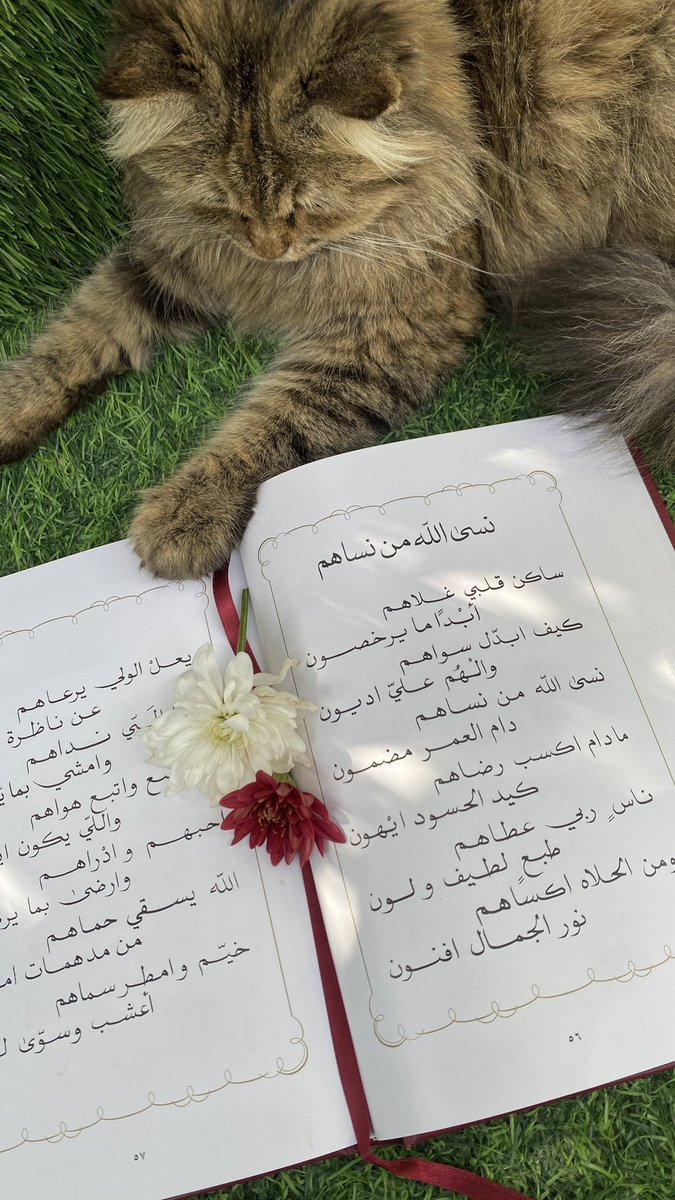 نسى الله من نساهم
ساكن قلبي غلاهم
أبْدًا ما يرخصون
كيف ابدّل سواهم
والْهُم عليّ اديون
نسىٰ الله من نساهم
دام العمر مضمون
مادام اكسب رضاهم
كيد الحسود ايْهون
ناسٍ ربي عطاهم
طبعٍ لطيف ولون
ومن الحلاه اكساهم
نور الجمال افنون
٥٦
يعلْ الولي يرعاهم
عن ناظرة
البّي نداهم
وامشي بما
واتبع هواهم
واللّي يكون
احبهم وادْراهم
وارضىٰ بما
الله يسقي حماهم
من مدهمات
خيّم وامطر سماهم
أعشب وسوّىٰ
٥٧